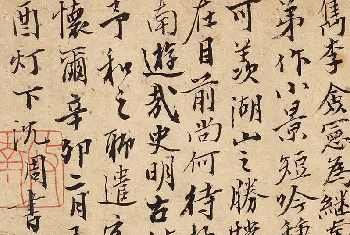 雋李貪憲為繼
弟作小景短吟
可羨湖山之勝
在目前尚何待
南遊哉史明古
予和之聊遣
懷爾辛卯二月
酉灯下沈周書